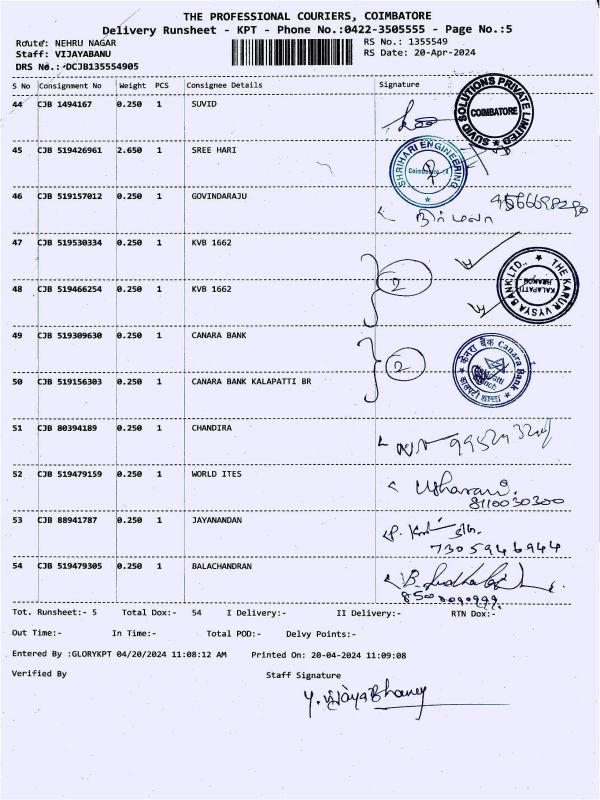 THE PROFESSIONAL COURIERS, COIMBATORE
Delivery Runsheet - KPT - Phone No.:0422-3505555 - Page No.:5
Route: NEHRU NAGAR
RS No.: 1355549
Staff: VIJAYABANU
RS Date: 20-Apr-2024
DRS No.: DCJB135554905
S No Consignment No Weight PCS Consignee Details Signature
44 CJB 1494167 0.250 1 SUVID
SUVID SOLUTIONS PRIVATE LIMITED
COIMBATORE
45 CJB 519426961 2.650 1 SREE HARI
SHRIHARI ENGINEERING
46 CJB 519157012 0.250 1 GOVINDARAJU
நிர்மலா
47 CJB 519530334 0.250 1 KVB 1662
48 CJB 519466254 0.250 1 KVB 1662
2
THE KARUR VYSYA BANK LTD.,
KALAPATTI
BRANCH
49 CJB 519309630 0.250 1 CANARA BANK
50 CJB 519156303 0.250 1 CANARA BANK KALAPATTI BR
2
केनरा बैंक Canara Bank
51 CJB 80394189 0.250 1 CHANDIRA
52 CJB 519479159 0.250 1 WORLD ITES
Usharani.
8110030300
53 CJB 88941787 0.250 1 JAYANANDAN
7305946944
54 CJB 519479305 0.250 1 BALACHANDRAN
Tot. Runsheet:- 5 Total Dox:- 54 I Delivery:- II Delivery:- RTN Dox:-
Out Time:- In Time:- Total POD:- Delvy Points:-
Entered By :GLORYKPT 04/20/2024 11:08:12 AM Printed On: 20-04-2024 11:09:08
Verified By Staff Signature
Y. VijayaBhanu